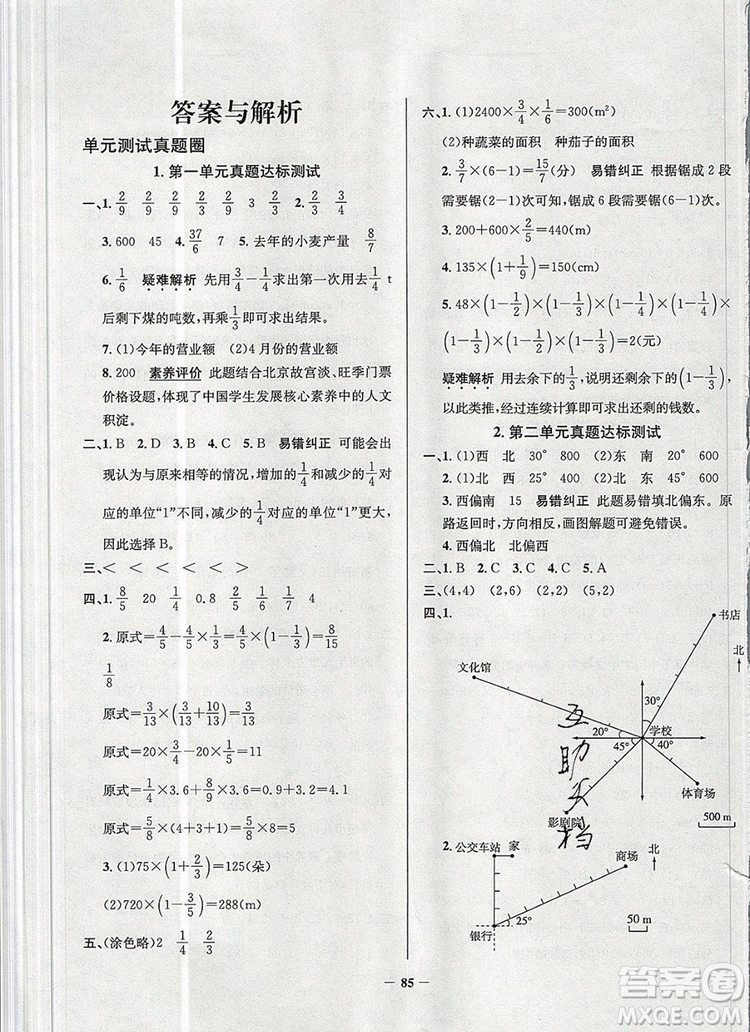 答案与解析
单元测试真题圈
1. 第一单元真题达标测试
一、1. 2/9 2/9 2/3 2/9 3 2. 2/3 3/4
3. 600 45 4. 37/6 7 5. 去年的小麦产量 8/7
6. 1/6 疑难解析 先用3/4-1/4求出第一次用去1/4 t
后剩下煤的吨数，再乘1/3即可求出结果。
7. (1)今年的营业额 (2)4月份的营业额
8. 200 素养评价 此题结合北京故宫淡、旺季门票
价格设题，体现了中国学生发展核心素养中的人文
积淀。
二、1. B 2. D 3. B 4. C 5. B 易错纠正 可能会出
现认为与原来相等的情况，增加的1/4和减少的1/4对
应的单位“1”不同，减少的1/4对应的单位“1”更大，
因此选择B。
三、< < < < < <
四、1. 8/5 20 1/4 0.8 2/5 1/6 1/7 4
2. 原式=4/5-4/5×1/3=4/5×(1-1/3)=8/15
1/8
原式=3/13×(3/13+10/13)=3/13
原式=1/4×20-1/5×20=1
原式=1/4×3.6+9/10×3.6=0.9+3.3=4.2
原式=5/8×(3+4+1)=5/8×8=5
3. (1)75×(1+2/3)=125(朵)
(2)720×(1-3/5)=288(m)
五、(涂色略)2 1/4 2/3
六、1. (1)2400×3/4×1/6=300(m²)
(2)种蔬菜的面积 种茄子的面积
2. 3/7×(6-1)=15/7(分) 易错纠正 根据锯成2段
需要锯(2-1)次可知，锯成6段需要锯(6-1)次。
3. 200+600×2/5=440(m)
4. 135×(1+1/9)=150(cm)
5. 48×(1-1/2)×(1-1/3)×(1-1/2)×
(1-1/3)×(1-1/2)×(1-1/3)=2(元)
疑难解析 用去余下的1/3，说明还剩余下的(1-1/3)，
以此类推，经过连续计算即可求出剩余的钱数。
2. 第二单元真题达标测试
一、1. (1)西 北 30° 800 (2)东 南 20° 600
2. (1)北 西 25° 400 (2)北 东 45° 600
3. 西偏南 15 易错纠正 此题易错填北偏东。原
路返回时，方向相反，画图解题可避免错误。
4. 西偏北 北偏西
二、1. B 2. C 3. C 4. C 5. A
三、(4,4) (2,6) (2,2) (5,2)
四、1.
书店
北
文化馆
30°
学校
20°
45°
40°
体育场
影剧院
500 m
互助文档
2. 公交车站 家
商场
北
25°
银行
50 m
85
答案圈
MXQE.COM